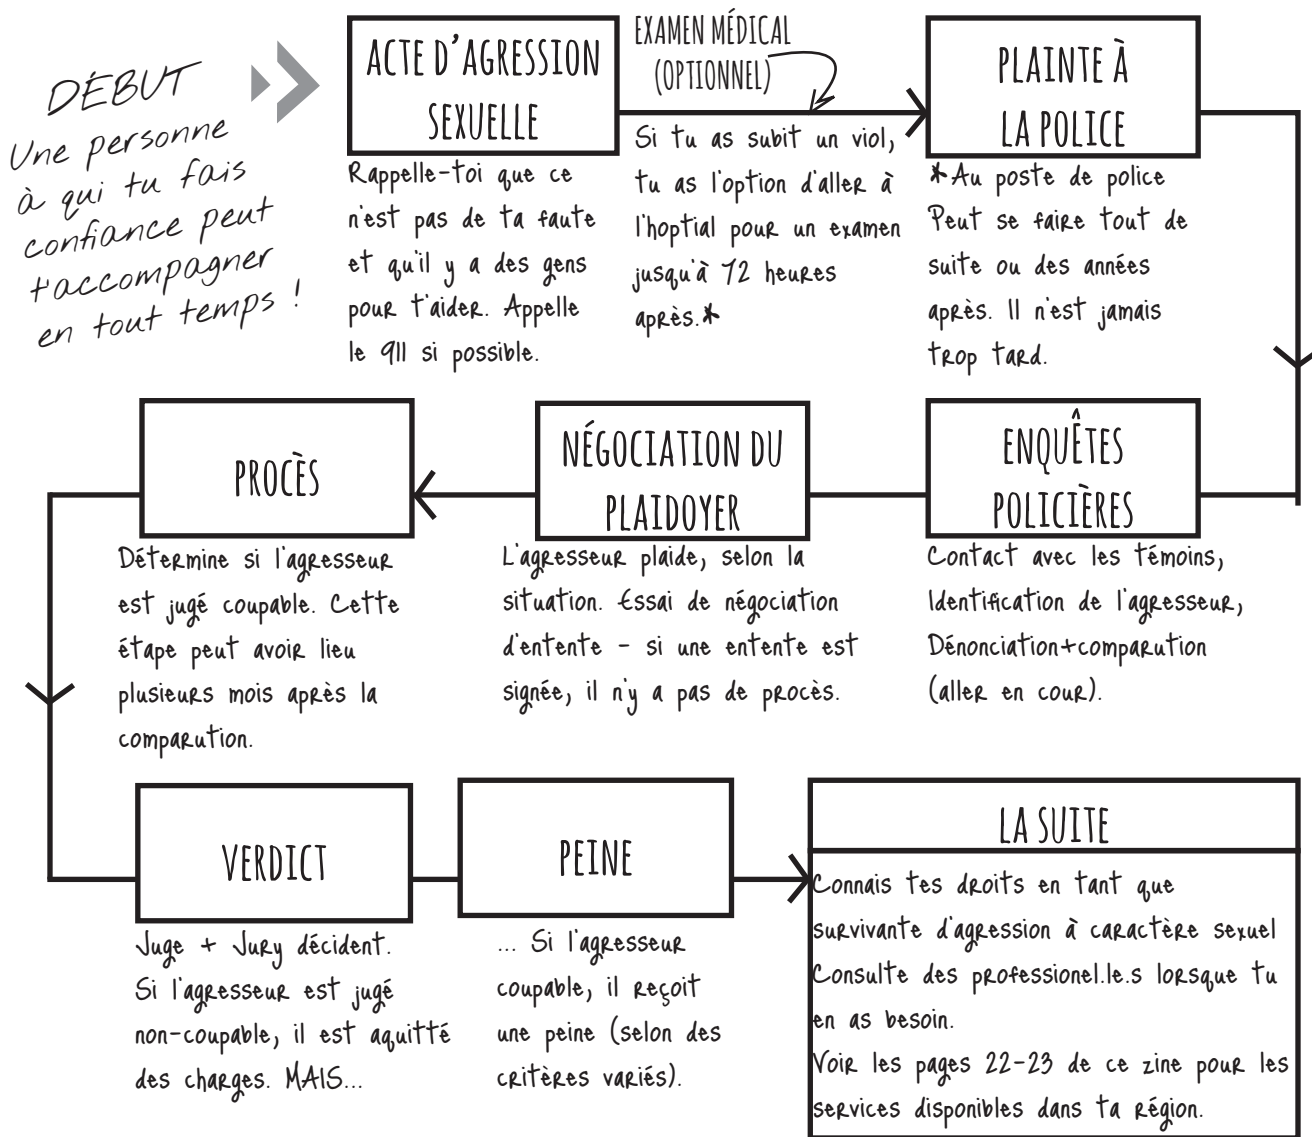 DÉBUT
Une personne
à qui tu fais
confiance peut
t'accompagner
en tout temps !
ACTE D'AGRESSION
SEXUELLE
Rappelle-toi que ce
n'est pas de ta faute
et qu'il y a des gens
pour t'aider. Appelle
le 911 si possible.
EXAMEN MÉDICAL
(OPTIONNEL)
Si tu as subit un viol,
tu as l'option d'aller à
l'hoptial pour un examen
jusqu'à 72 heures
après.*
PLAINTE À
LA POLICE
*Au poste de police
Peut se faire tout de
suite ou des années
après. Il n'est jamais
trop tard.
PROCÈS
Détermine si l'agresseur
est jugé coupable. Cette
étape peut avoir lieu
plusieurs mois après la
comparution.
NÉGOCIATION DU
PLAIDOYER
L'agresseur plaide, selon la
situation. Essai de négociation
d'entente - si une entente est
signée, il n'y a pas de procès.
ENQUÊTES
POLICIÈRES
Contact avec les témoins,
Identification de l'agresseur,
Dénonciation+comparution
(aller en cour).
VERDICT
Juge + Jury décident.
Si l'agresseur est jugé
non-coupable, il est aquitté
des charges. MAIS...
PEINE
... Si l'agresseur
coupable, il reçoit
une peine (selon des
critères variés).
LA SUITE
Connais tes droits en tant que
survivante d'agression à caractère sexuel
Consulte des professionel.le.s lorsque tu
en as besoin.
Voir les pages 22-23 de ce zine pour les
services disponibles dans ta région.